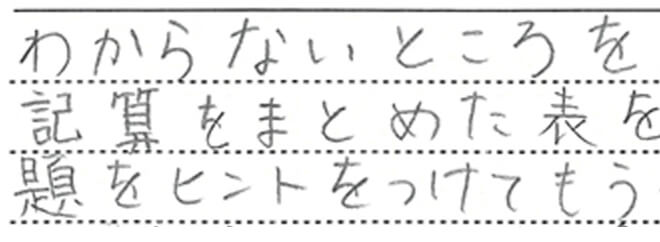 わからないところを
記算をまとめた表を
題をヒントをつけてもう